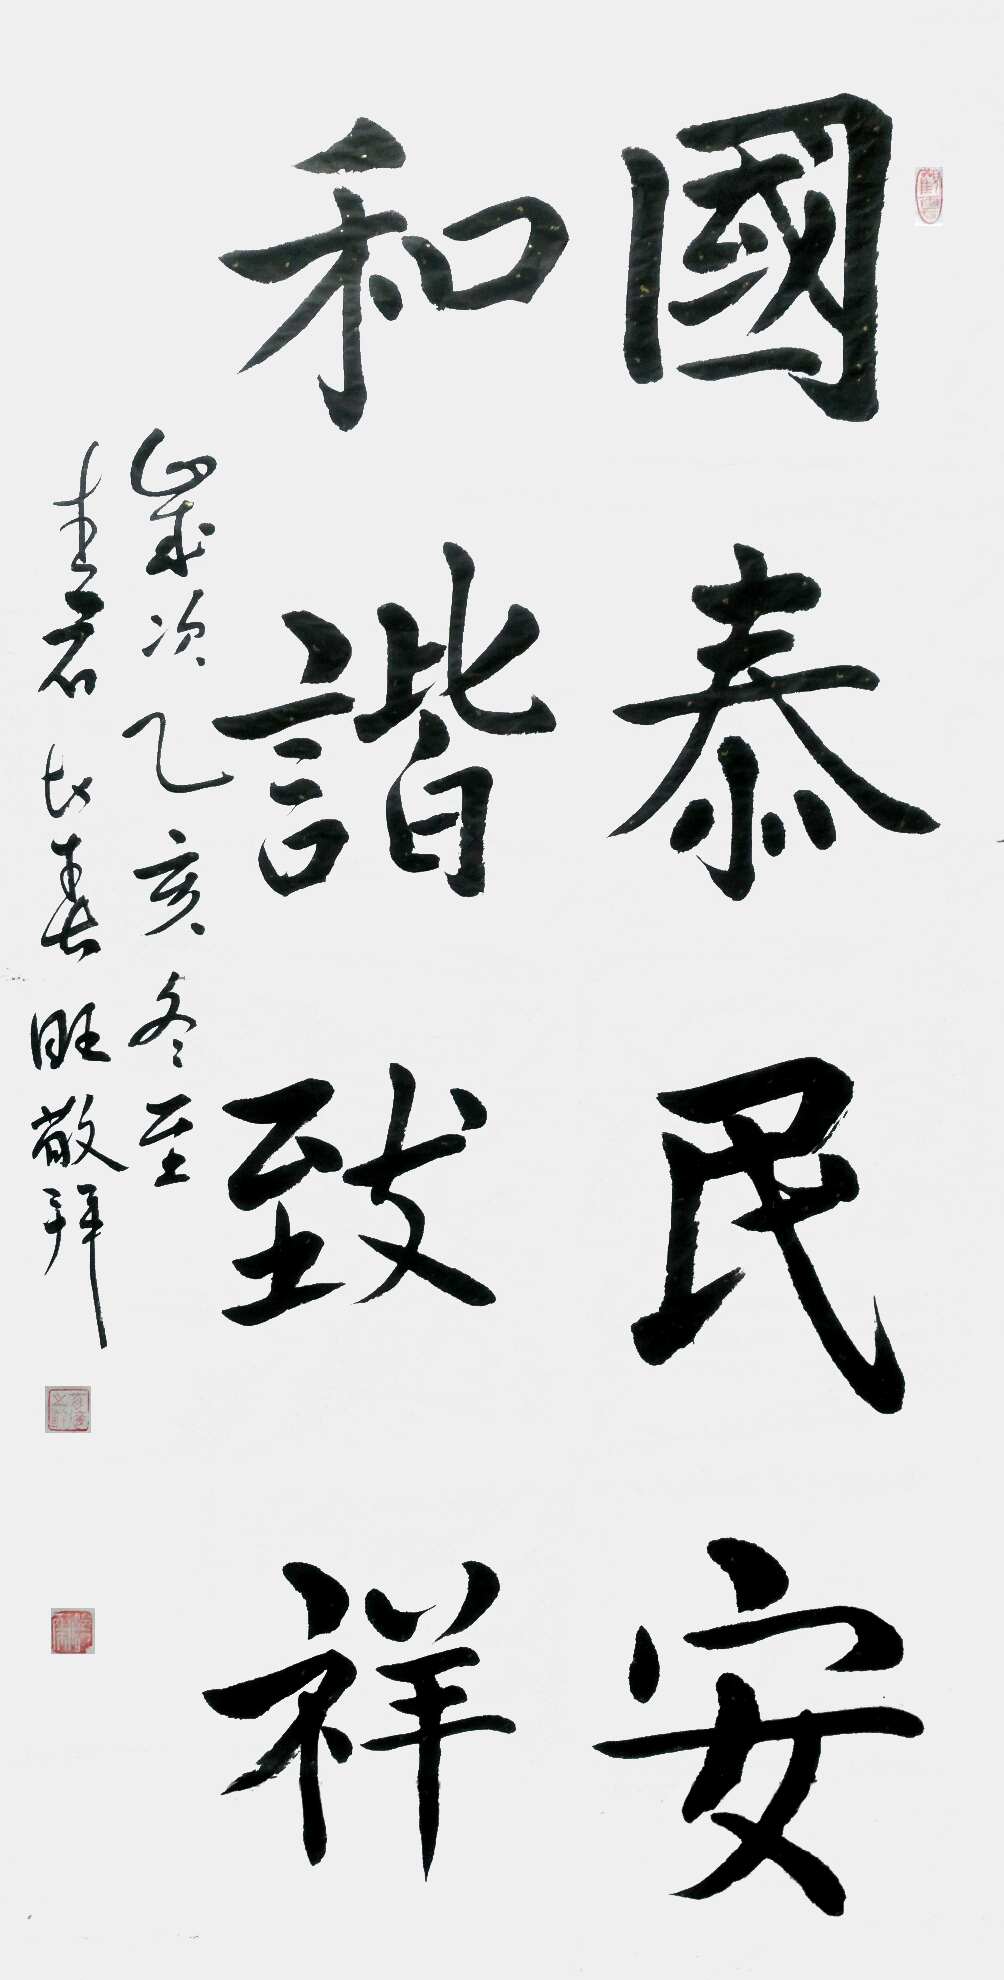 國泰民安
和諧致祥
歲次乙亥冬至
長春旺敬拜